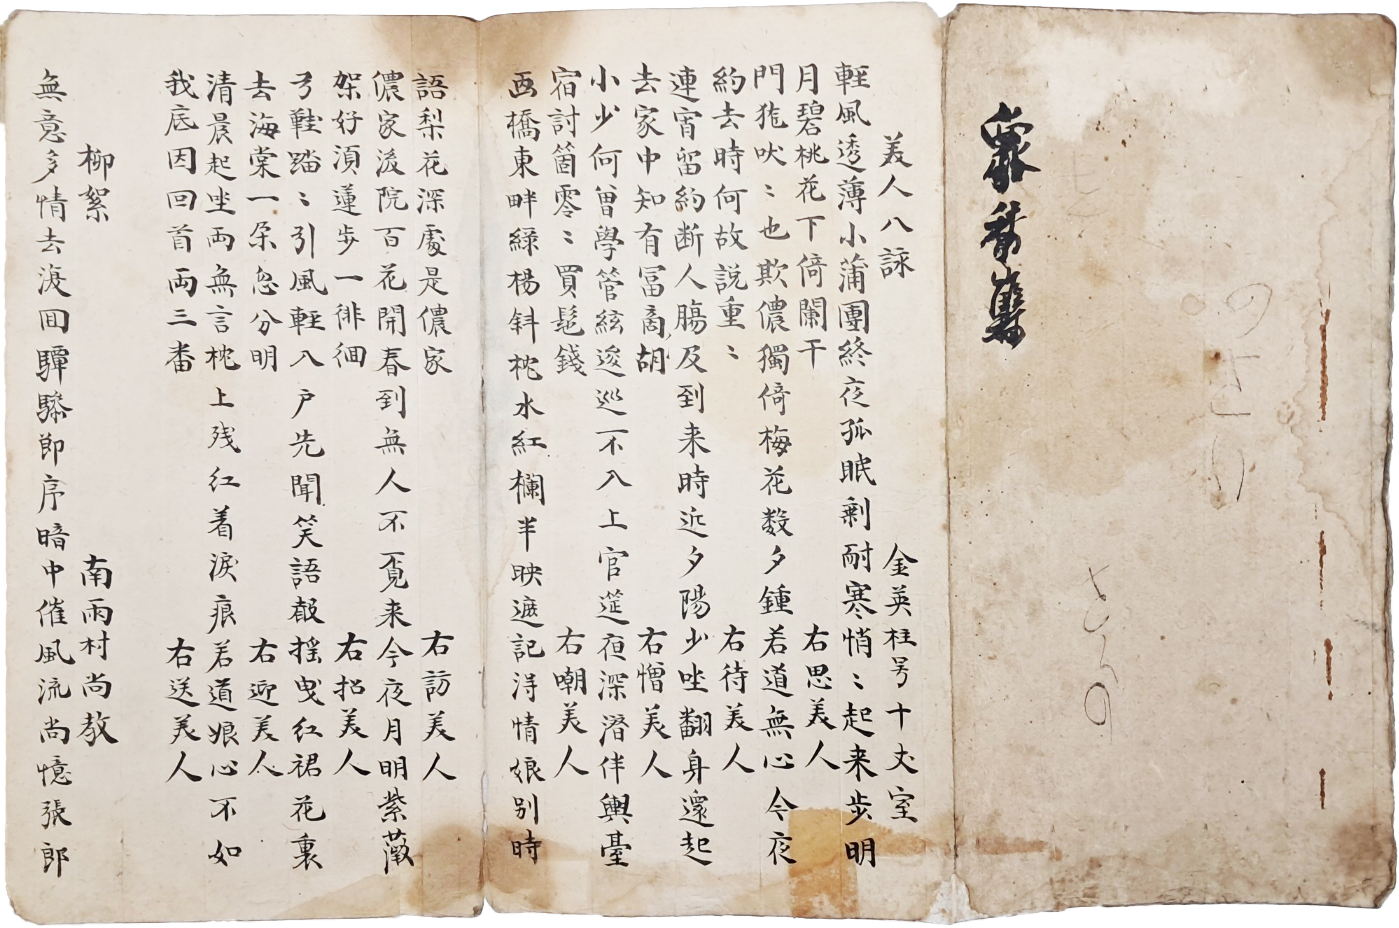 美人八詠 金英柱号十丈室
輕風透薄小蒲團終夜孤眠剩耐寒悄〻起来步明
月碧桃花下倚闌干 右思美人
門狵吠〻也欺儂獨倚梅花数夕鍾若道無心今夜
約去時何故説重〻 右待美人
連宵留約断人膓及到来時近夕陽少坐翻身還起
去家中知有冨商胡 右憎美人
小少何曾學管絃逡巡不入上官筵夜深潜伴輿臺
宿討箇零〻買髢錢 右嘲美人
西橋東畔緑楊斜枕水紅欄半映遮記淂情娘别時
語梨花深處是儂家 右訪美人
儂家後院百花開春到無人不覓来今夜月明紫薇
架好湏蓮步一徘徊 右招美人
弓鞋踏〻引風軽入户先聞笑語聲揺曳红裙花裏
去海棠一朶忽分明 右迎美人
清晨起坐両無言枕上残红着淚痕若道娘心不如
我底因回首両三番 右送美人
柳絮 南雨村尚教
無意多情去復回驔驂即序暗中催風流尚憶張郎